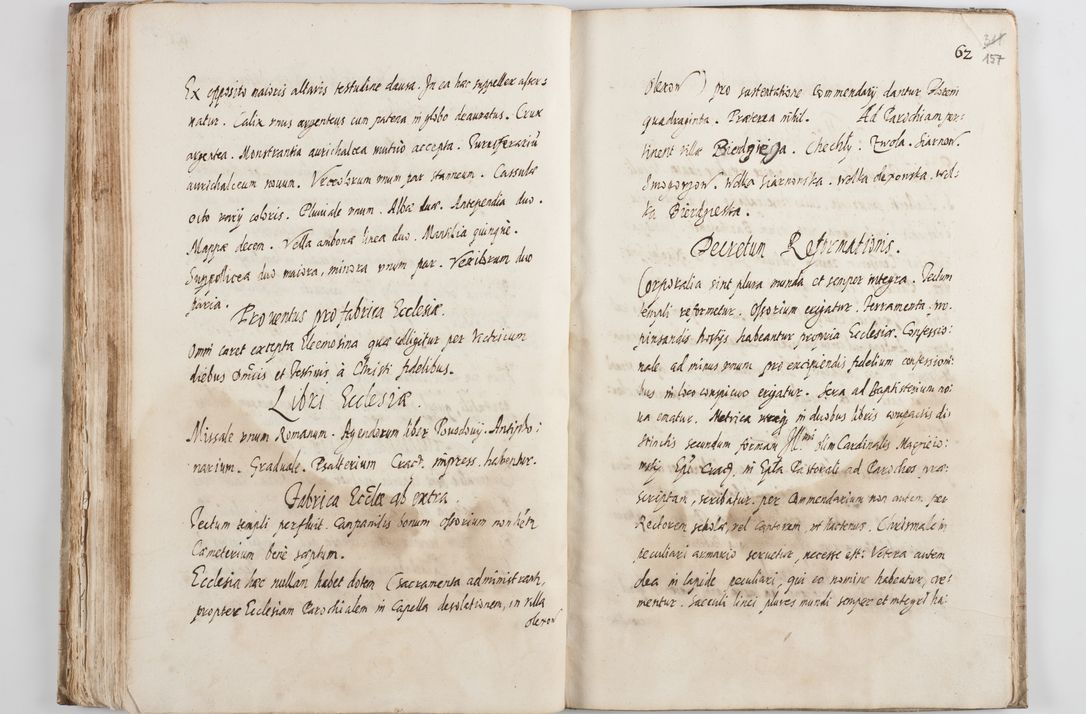 Ex opposito maioris altaris testudine clausa. In ea haec suppellex asser
natur. Calix unus argenteus cum patena in globo deauratus. Crux
argentea. Monstrantia aurichalcea mutuo accepta. Turiferariũ
aurichalceum nouum. Vrceolorum unum par stanneum. Cassulæ
octo varij coloris. Pluuiale unum. Albæ duæ. Antependia duo.
Mappæ decem. Vella ambonæ linea duo. Mantilia quinque.
Superlicea duo maiora, minora unum par. Vexillorum duo
paria.
Prouentus pro fabrica Ecclesiæ.
Omni caret excepta Eleemosina quæ colligitur per Vitricum
diebus Dñicis et Festiuis à Christi fidelibus.
Libri Ecclesiæ.
Missale unum Romanum. Agendorum liber Pouodouij. Antipho:
narium. Graduale. Psalterium Cracou. impress. habentur.
Fabrica Eccłæ ab extra.
Tectum templi perfluit. Campanilis bonum ossorium non hẽtr
Cæmeterium benè septum.
Ecclesia hæc nullam habet dotem (sacramenta administrant,
propter Ecclesiam Parochialem in Capella desolationem, in villa
olexow
62
311
157
Olexow) pro sustentatione Commendarij dantur floreni
quadraginta. Præterea nihil. Ad Parochiam per:
tinent villæ Bierdzieza. Chechły. Zwola. Siarnow.
Smogorzow. Wolka Siarnowska. Wolka olexowska. Wol:
ka Bierdzieska.
Decretum Reformationis.
Corporalia sint plura munda et semper integra. Tectum
templi reformetur. Ossorium erigatur. Ferramenta pro
pinsandis hostijs habeantur propria Ecclesiæ. Confessio:
nale ad minus unum pro excipiendis fidelium confessioni:
bus in loco conspicuo erigatur. Sera ad Baptisterium no:
ua ematur. Metrica in duobus libris compactis di:
stinctis secundum formam Illmi olim Cardinalis Macieio:
wskij Epi Cracou. in Epła Pastorali ad Parochos præ:
scriptam, scribatur per Commendarium non autem per
Rectorem scholæ, vel Cantorem, ut hactenus. Chrismale in
peculiari armario seruetur, necesse est: Vetera autem
olea in lapide peculiari, qui eo nomine habeatur, cre:
mentur. Sacculi linei plures mundi semper et integri ha: